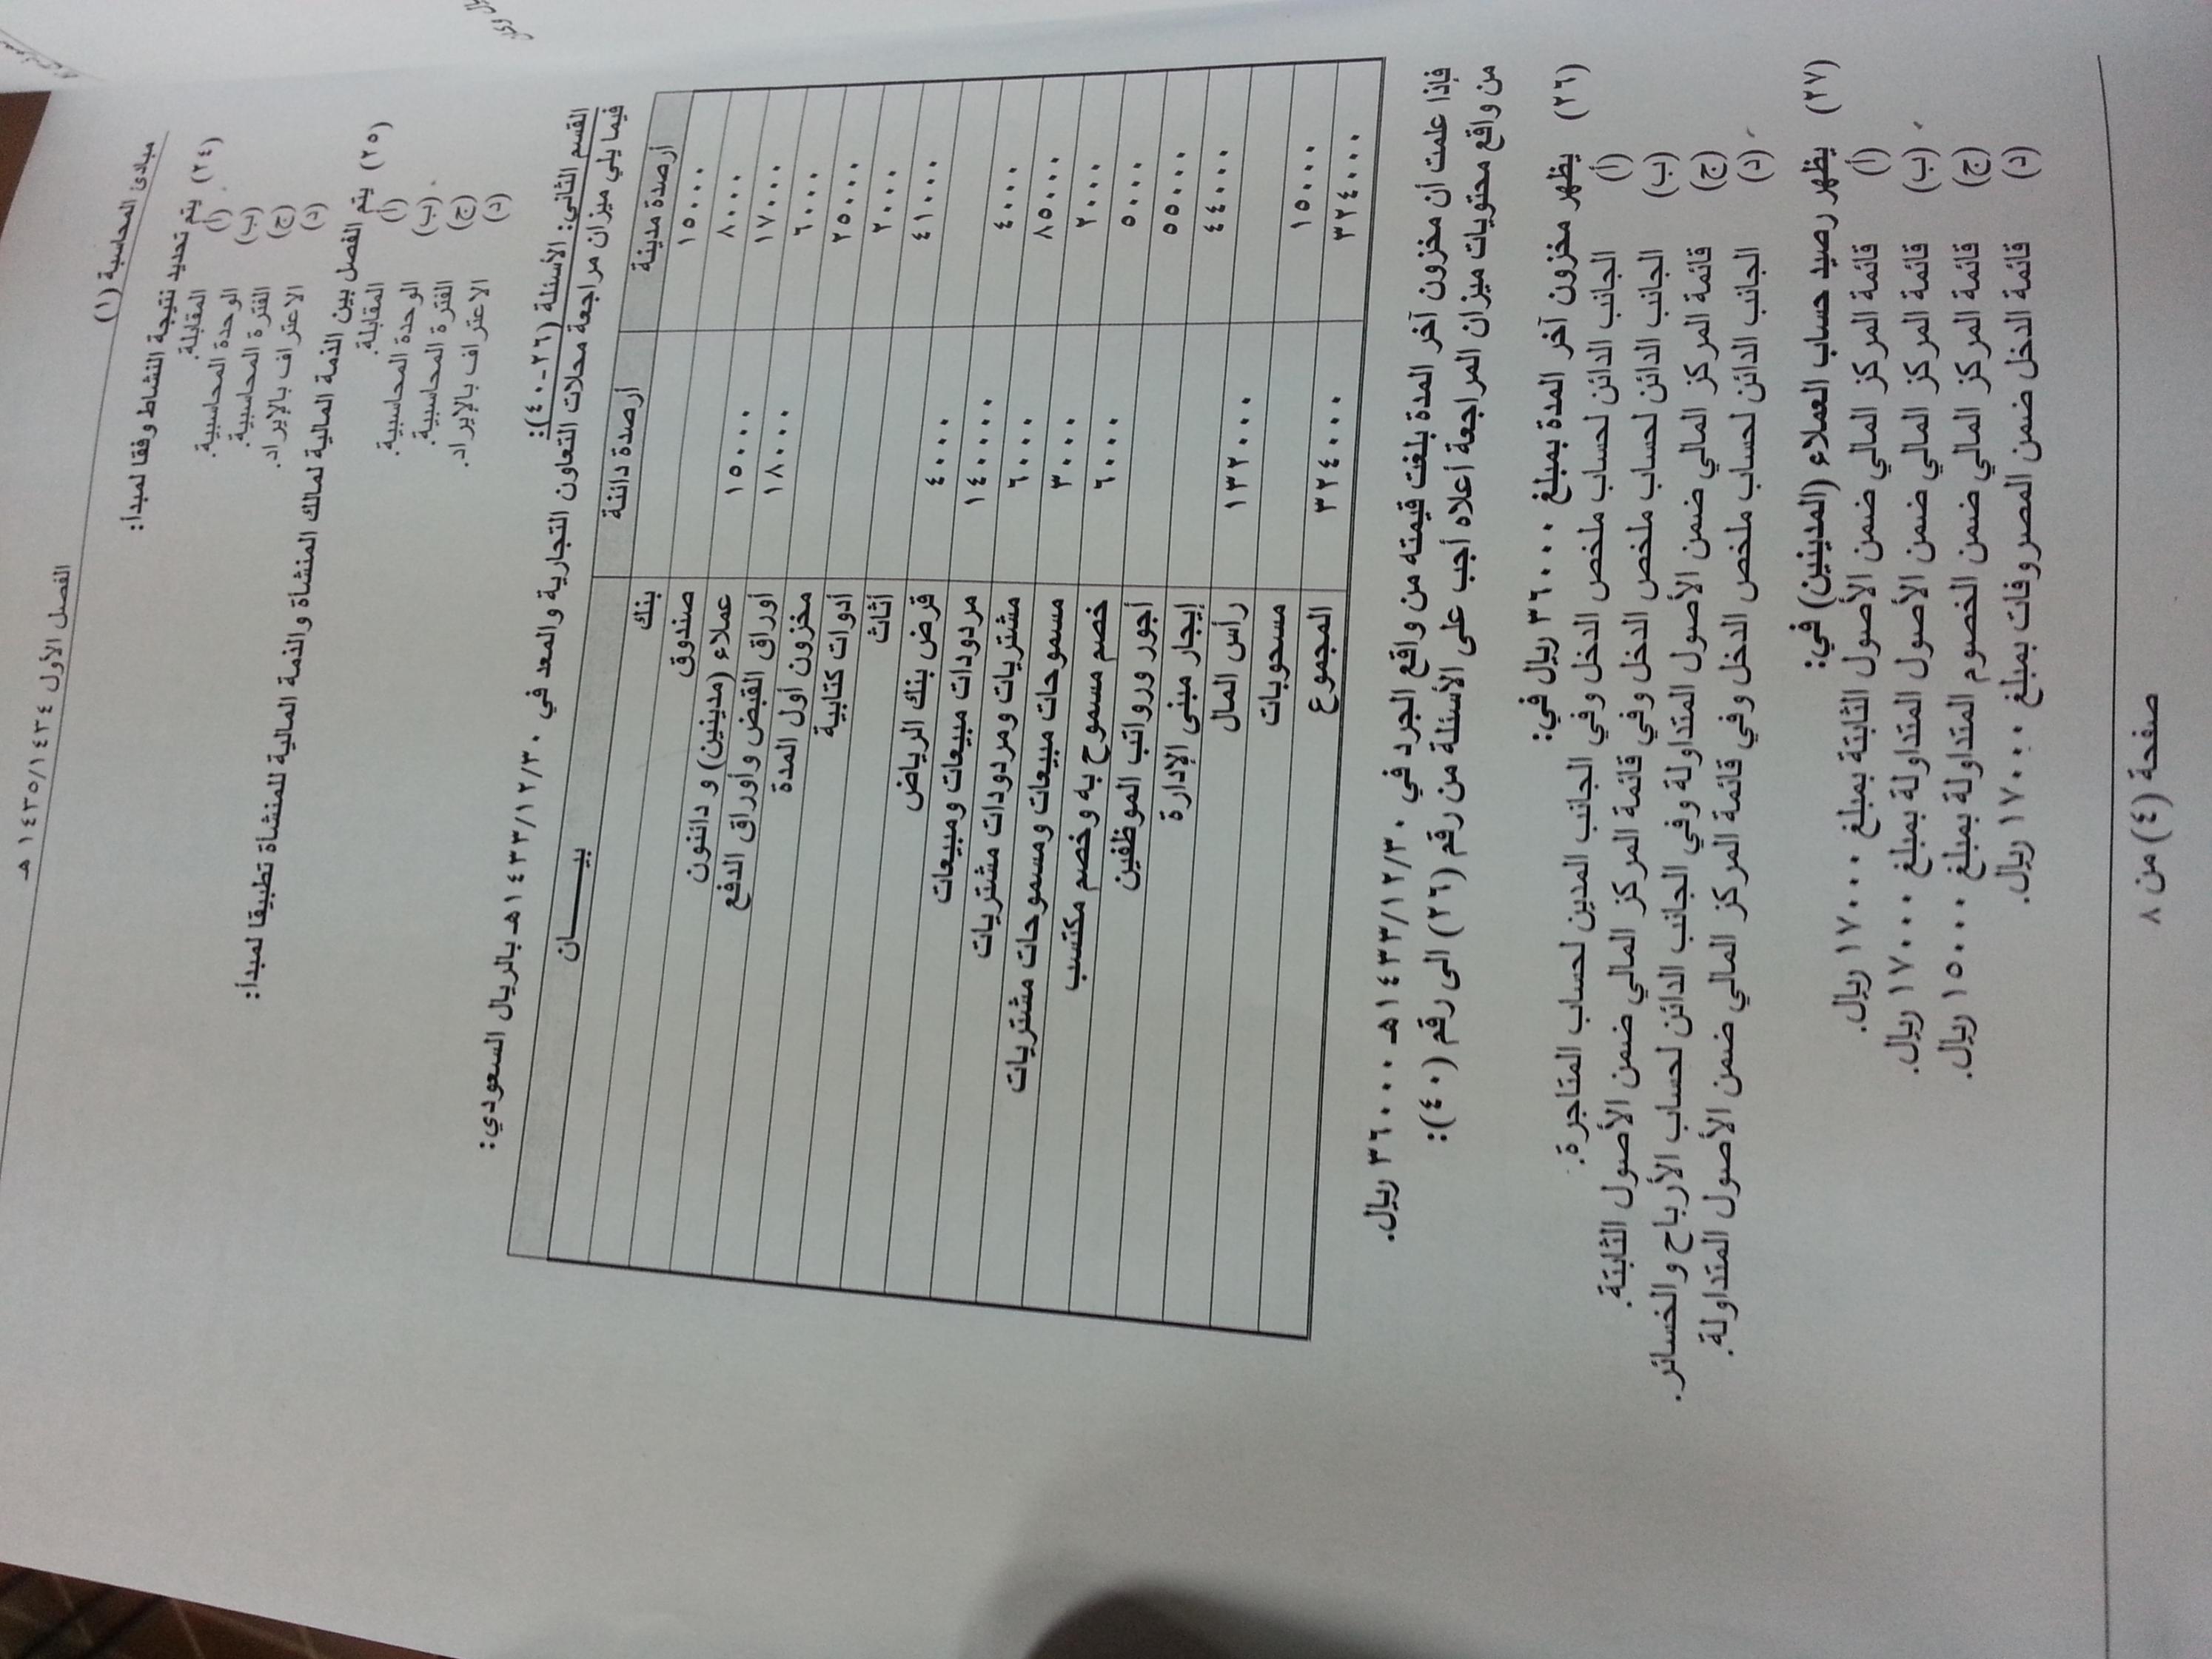 مبادئ المحاسبة (١)
الفصل الأول ١٤٣٤/١٤٣٥ هـ
(٢٤) يتم تحديد نتيجة النشاط وفقا لمبدأ:
(أ) المقابلة.
(ب) الوحدة المحاسبية.
(ج) الفترة المحاسبية.
(د) الاعتراف بالإيراد.
(٢٥) يتم الفصل بين الذمة المالية لمالك المنشأة والذمة المالية للمنشأة تطبيقا لمبدأ:
(أ) المقابلة.
(ب) الوحدة المحاسبية.
(ج) الفترة المحاسبية.
(د) الاعتراف بالإيراد.
القسم الثاني: الأسئلة (٢٦-٤٠):
فيما يلي ميزان مراجعة محلات التعاون التجارية والمعد في ١٤٣٣/١٢/٣٠هـ بالريال السعودي:
أرصدة مدينة أرصدة دائنة بيـــــان
١٥٠٠٠ بنك
٨٠٠٠ صندوق
١٧٠٠٠ ١٥٠٠٠ عملاء (مدينين) و دائنون
٦٠٠٠ ١٨٠٠٠ أوراق القبض وأوراق الدفع
٢٥٠٠٠ مخزون أول المدة
٢٠٠٠ أدوات كتابية
٤١٠٠٠ أثاث
٤٠٠٠ قرض بنك الرياض
٤٠٠٠ ١٤٠٠٠٠ مردودات مبيعات ومبيعات
٨٥٠٠٠ ٦٠٠٠ مشتريات ومردودات مشتريات
٢٠٠٠ ٣٠٠٠ مسموحات مبيعات ومسموحات مشتريات
٥٠٠٠ ٦٠٠٠ خصم مسموح به وخصم مكتسب
٥٥٠٠٠ أجور ورواتب الموظفين
٤٤٠٠٠ إيجار مبنى الإدارة
١٣٢٠٠٠ رأس المال
١٥٠٠٠ مسحوبات
٣٢٤٠٠٠ ٣٢٤٠٠٠ المجموع
فإذا علمت أن مخزون آخر المدة بلغت قيمته من واقع الجرد في ١٤٣٣/١٢/٣٠هـ ٣٦٠٠٠ ريال.
من واقع محتويات ميزان المراجعة أعلاه أجب على الأسئلة من رقم (٢٦) الى رقم (٤٠):
(٢٦) يظهر مخزون آخر المدة بمبلغ ٣٦٠٠٠ ريال في:
(أ) الجانب الدائن لحساب ملخص الدخل وفي الجانب المدين لحساب المتاجرة.
(ب) الجانب الدائن لحساب ملخص الدخل وفي قائمة المركز المالي ضمن الأصول الثابتة.
(ج) قائمة المركز المالي ضمن الأصول المتداولة وفي الجانب الدائن لحساب الأرباح والخسائر.
(د) الجانب الدائن لحساب ملخص الدخل وفي قائمة المركز المالي ضمن الأصول المتداولة.
(٢٧) يظهر رصيد حساب العملاء (المدينين) في:
(أ) قائمة المركز المالي ضمن الأصول الثابتة بمبلغ ١٧٠٠٠ ريال.
(ب) قائمة المركز المالي ضمن الأصول المتداولة بمبلغ ١٧٠٠٠ ريال.
(ج) قائمة المركز المالي ضمن الخصوم المتداولة بمبلغ ١٥٠٠٠ ريال.
(د) قائمة الدخل ضمن المصروفات بمبلغ ١٧٠٠٠ ريال.
صفحة (٤) من ٨